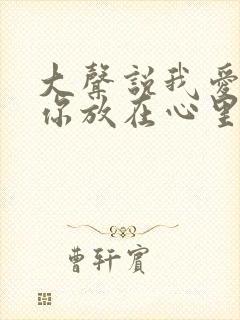 大聲説我愛
你放在心里
曹轩賓